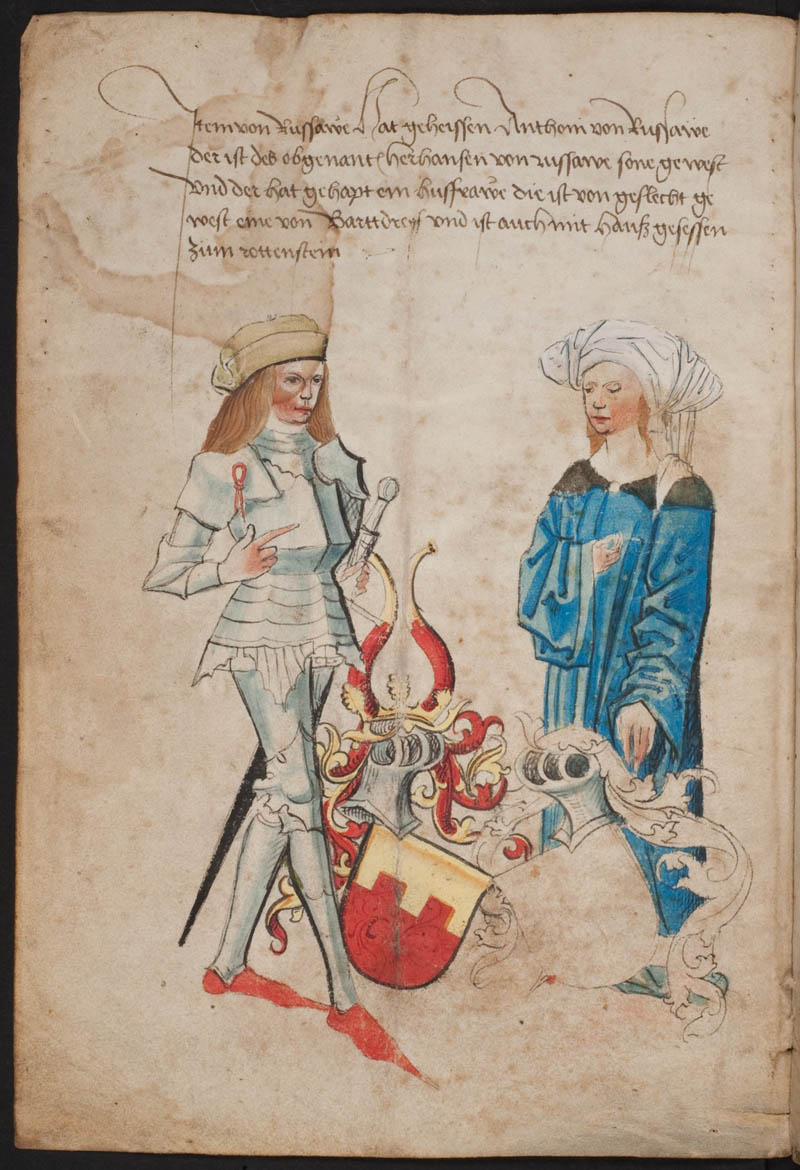 Item von Russawe Hat geheissen Anthoni von Russawe
der ist des obgenant her hansen von russawe sone gewest
Vnd der hat gehapt ein husfrawe die ist von geslecht ge
west eine von vnd ist auch mit hauß gesessen
zum rottenstein